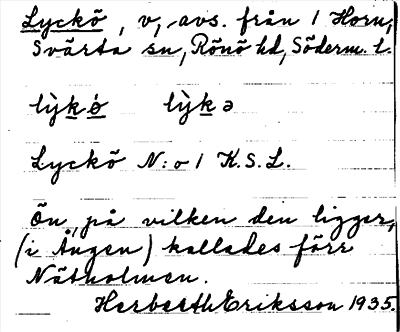 Lyckö, v, avs. från 1 Horn,
Svärta sn, Rönö hd, Söderm. l.
lỳkö́ lỳkə
Lyckö N:o 1 K.S.L.
Ön, på vilken den ligger,
(i Ången) kallades förr
Nätholmen.
Herbert Eriksson 1935.